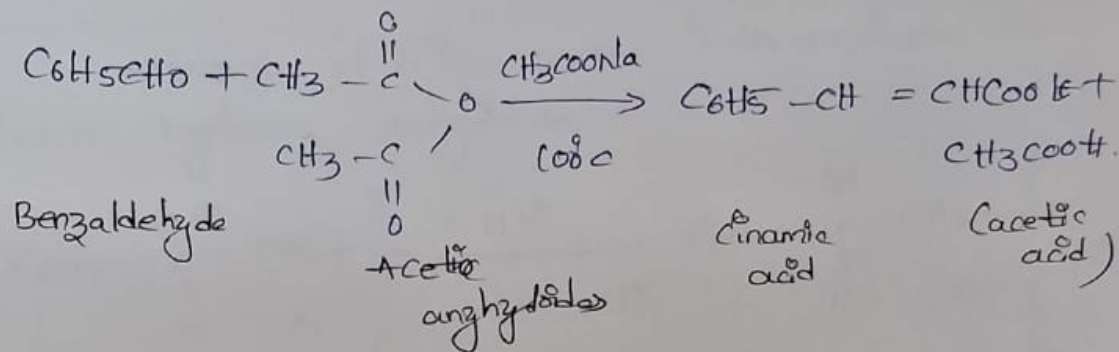 O
||
C6H5CHO + CH3 - C \ O CH3COONa → C6H5 - CH = CHCOO +
CH3 - C / 100°C CH3COOH.
||
O
Benzaldehyde
Acetic
anghydrides
Cinamic
acid
(acetic
acid)